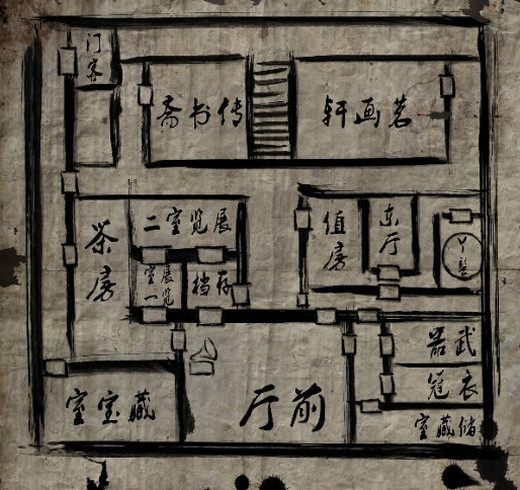 门客
传书斋
茗画轩
茶房
展览室二
值房
东厅
丫鬟
展览室一
存档
武器
衣冠
藏宝室
前厅
储藏室